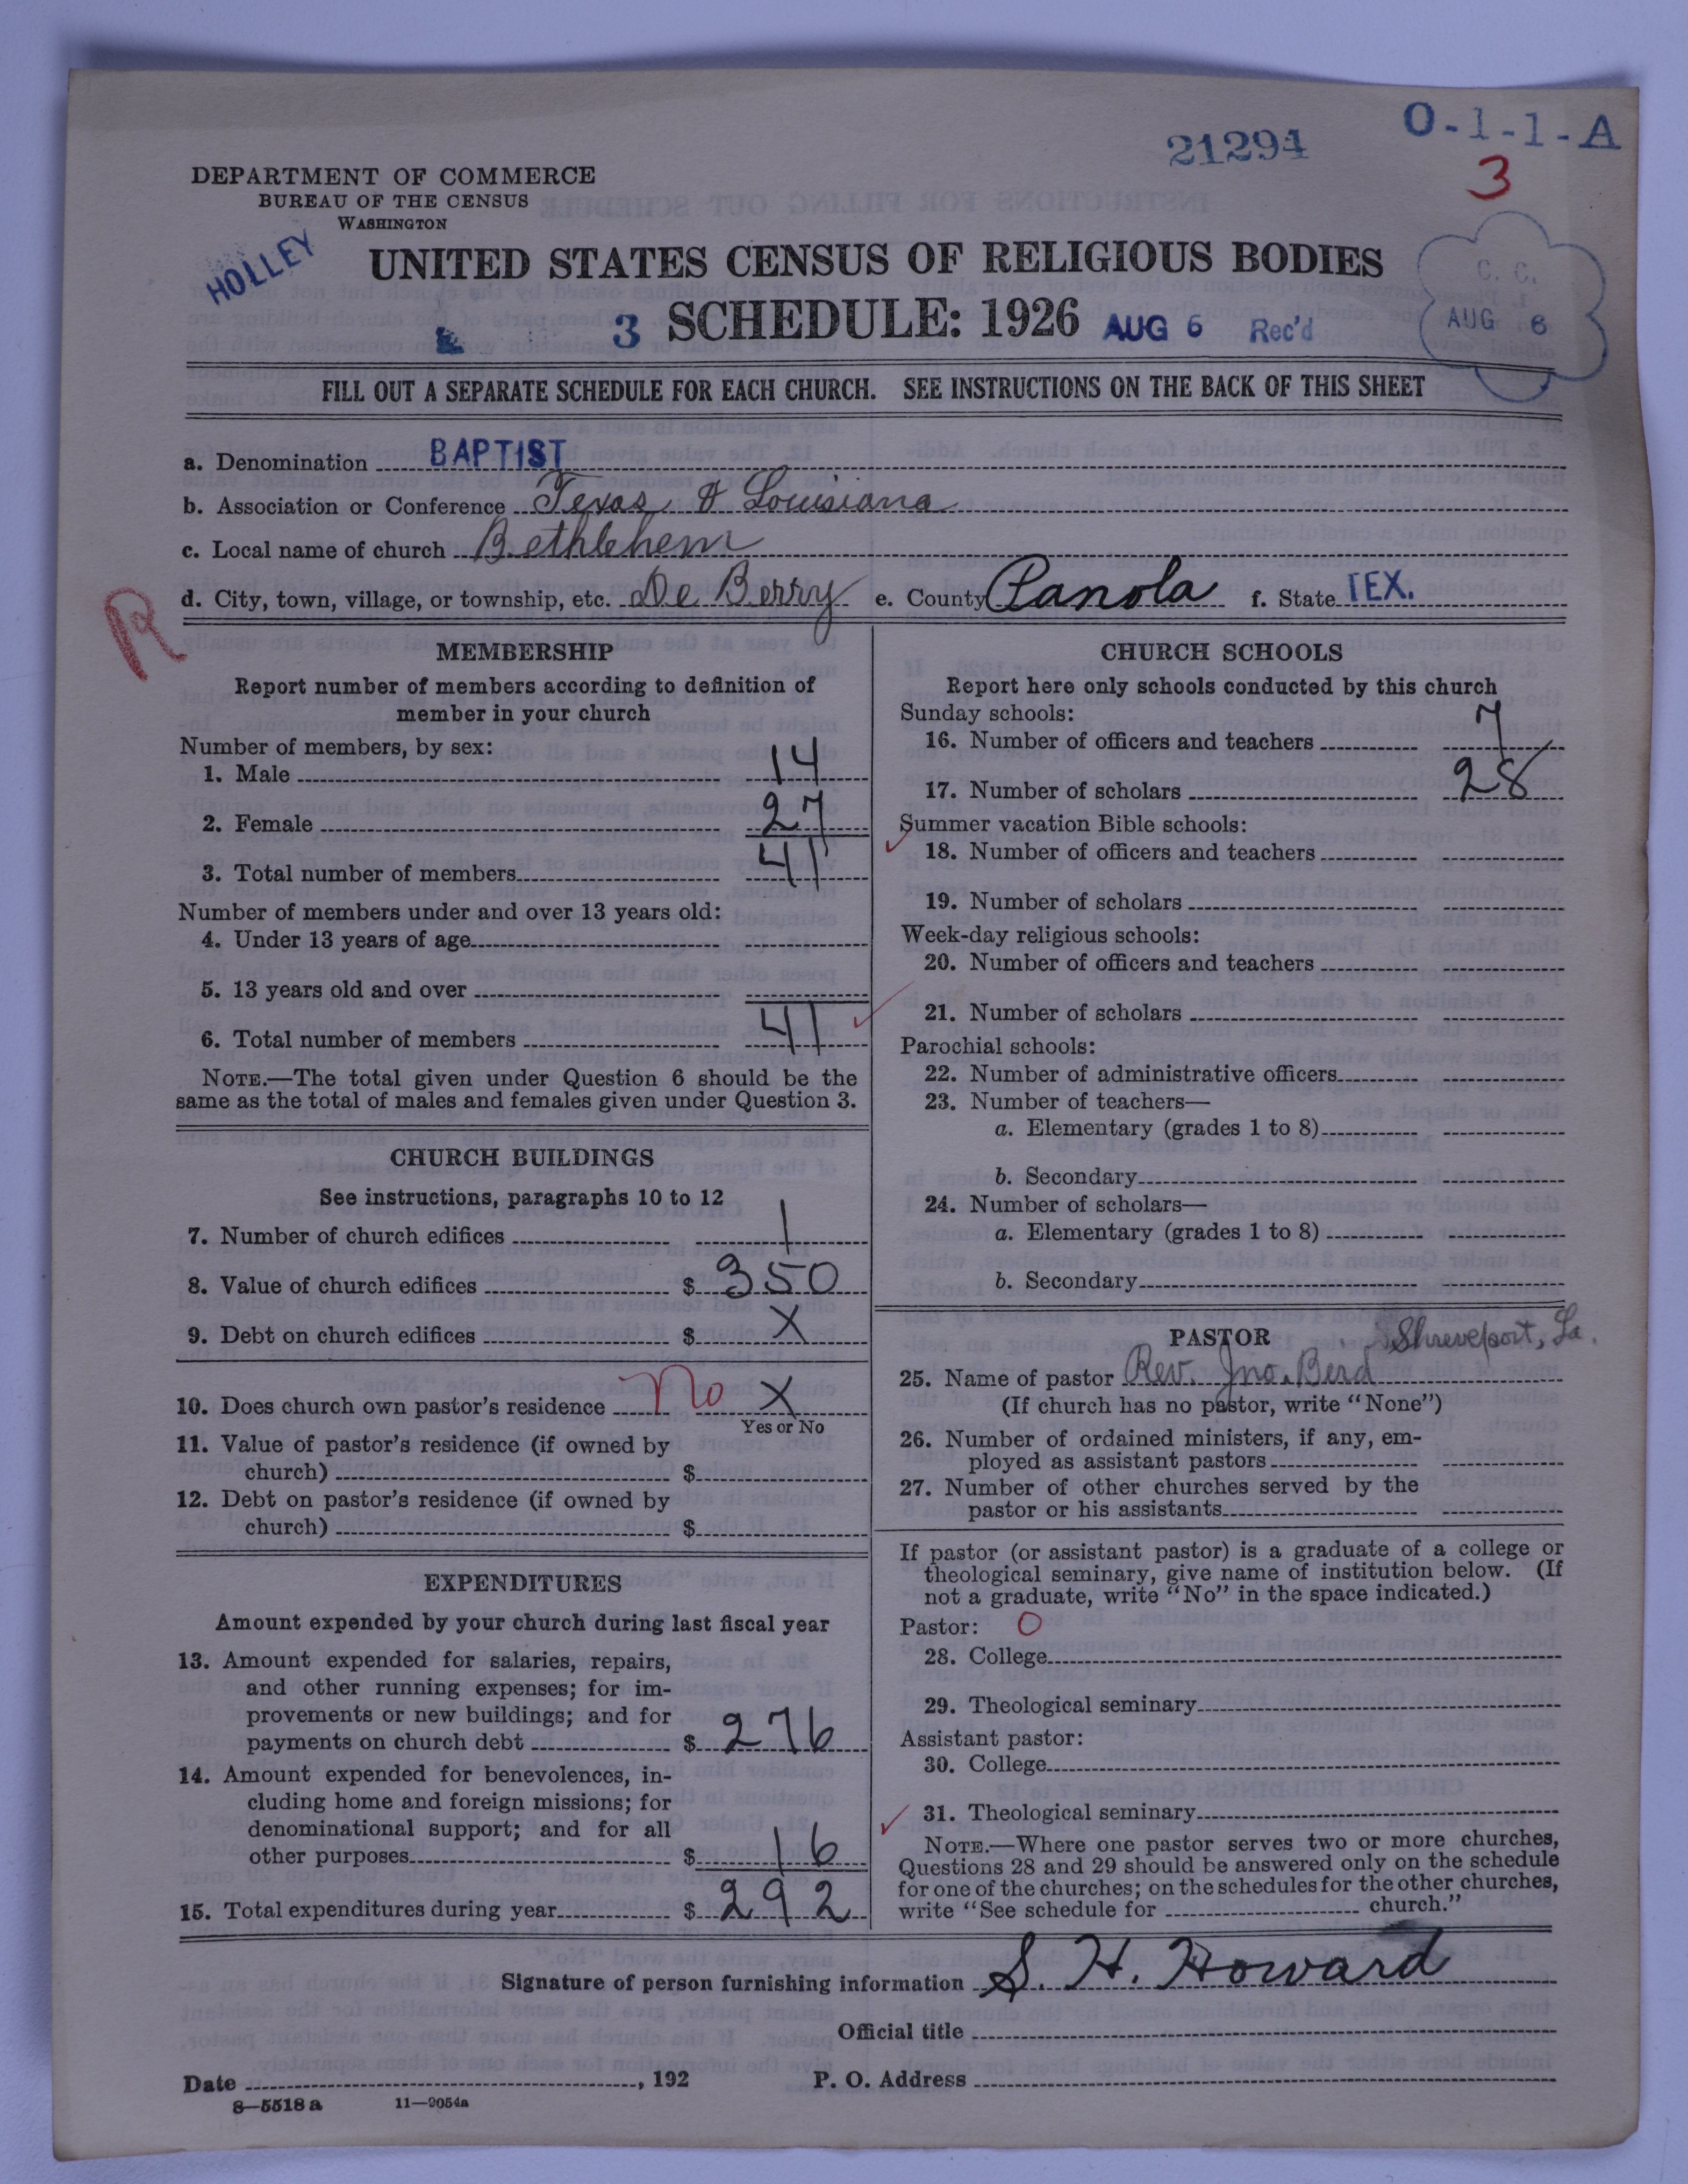 21294
O-1-1-A
3
DEPARTMENT OF COMMERCE
BUREAU OF THE CENSUS
WASHINGTON
HOLLEY
UNITED STATES CENSUS OF RELIGIOUS BODIES
3 SCHEDULE: 1926 AUG 6 Rec'd
C. C.
AUG 6
FILL OUT A SEPARATE SCHEDULE FOR EACH CHURCH. SEE INSTRUCTIONS ON THE BACK OF THIS SHEET
a. Denomination BAPTIST
b. Association or Conference Texas & Louisiana
c. Local name of church Bethlehem
d. City, town, village, or township, etc. De Berry e. County Panola f. State TEX.
R
MEMBERSHIP
Report number of members according to definition of
member in your church
Number of members, by sex:
1. Male 14
2. Female 27
3. Total number of members 41
Number of members under and over 13 years old:
4. Under 13 years of age
5. 13 years old and over
6. Total number of members 41
NOTE.—The total given under Question 6 should be the
same as the total of males and females given under Question 3.
CHURCH BUILDINGS
See instructions, paragraphs 10 to 12
7. Number of church edifices 1
8. Value of church edifices $ 350
9. Debt on church edifices $ X
10. Does church own pastor's residence No X
Yes or No
11. Value of pastor's residence (if owned by
church) $
12. Debt on pastor's residence (if owned by
church) $
EXPENDITURES
Amount expended by your church during last fiscal year
13. Amount expended for salaries, repairs,
and other running expenses; for im-
provements or new buildings; and for
payments on church debt $ 276
14. Amount expended for benevolences, in-
cluding home and foreign missions; for
denominational support; and for all
other purposes $ 16
15. Total expenditures during year $ 292
CHURCH SCHOOLS
Report here only schools conducted by this church
Sunday schools:
16. Number of officers and teachers 7
17. Number of scholars 28
Summer vacation Bible schools:
18. Number of officers and teachers
19. Number of scholars
Week-day religious schools:
20. Number of officers and teachers
21. Number of scholars
Parochial schools:
22. Number of administrative officers
23. Number of teachers—
a. Elementary (grades 1 to 8)
b. Secondary
24. Number of scholars—
a. Elementary (grades 1 to 8)
b. Secondary
PASTOR Shreveport, La.
25. Name of pastor Rev. Jno. Berd
(If church has no pastor, write "None")
26. Number of ordained ministers, if any, em-
ployed as assistant pastors
27. Number of other churches served by the
pastor or his assistants
If pastor (or assistant pastor) is a graduate of a college or
theological seminary, give name of institution below. (If
not a graduate, write "No" in the space indicated.)
Pastor: O
28. College
29. Theological seminary
Assistant pastor:
30. College
31. Theological seminary
NOTE.—Where one pastor serves two or more churches,
Questions 28 and 29 should be answered only on the schedule
for one of the churches; on the schedules for the other churches,
write "See schedule for church."
Signature of person furnishing information S. H. Howard
Official title
Date , 192 P. O. Address
8—5518 a 11—9054a